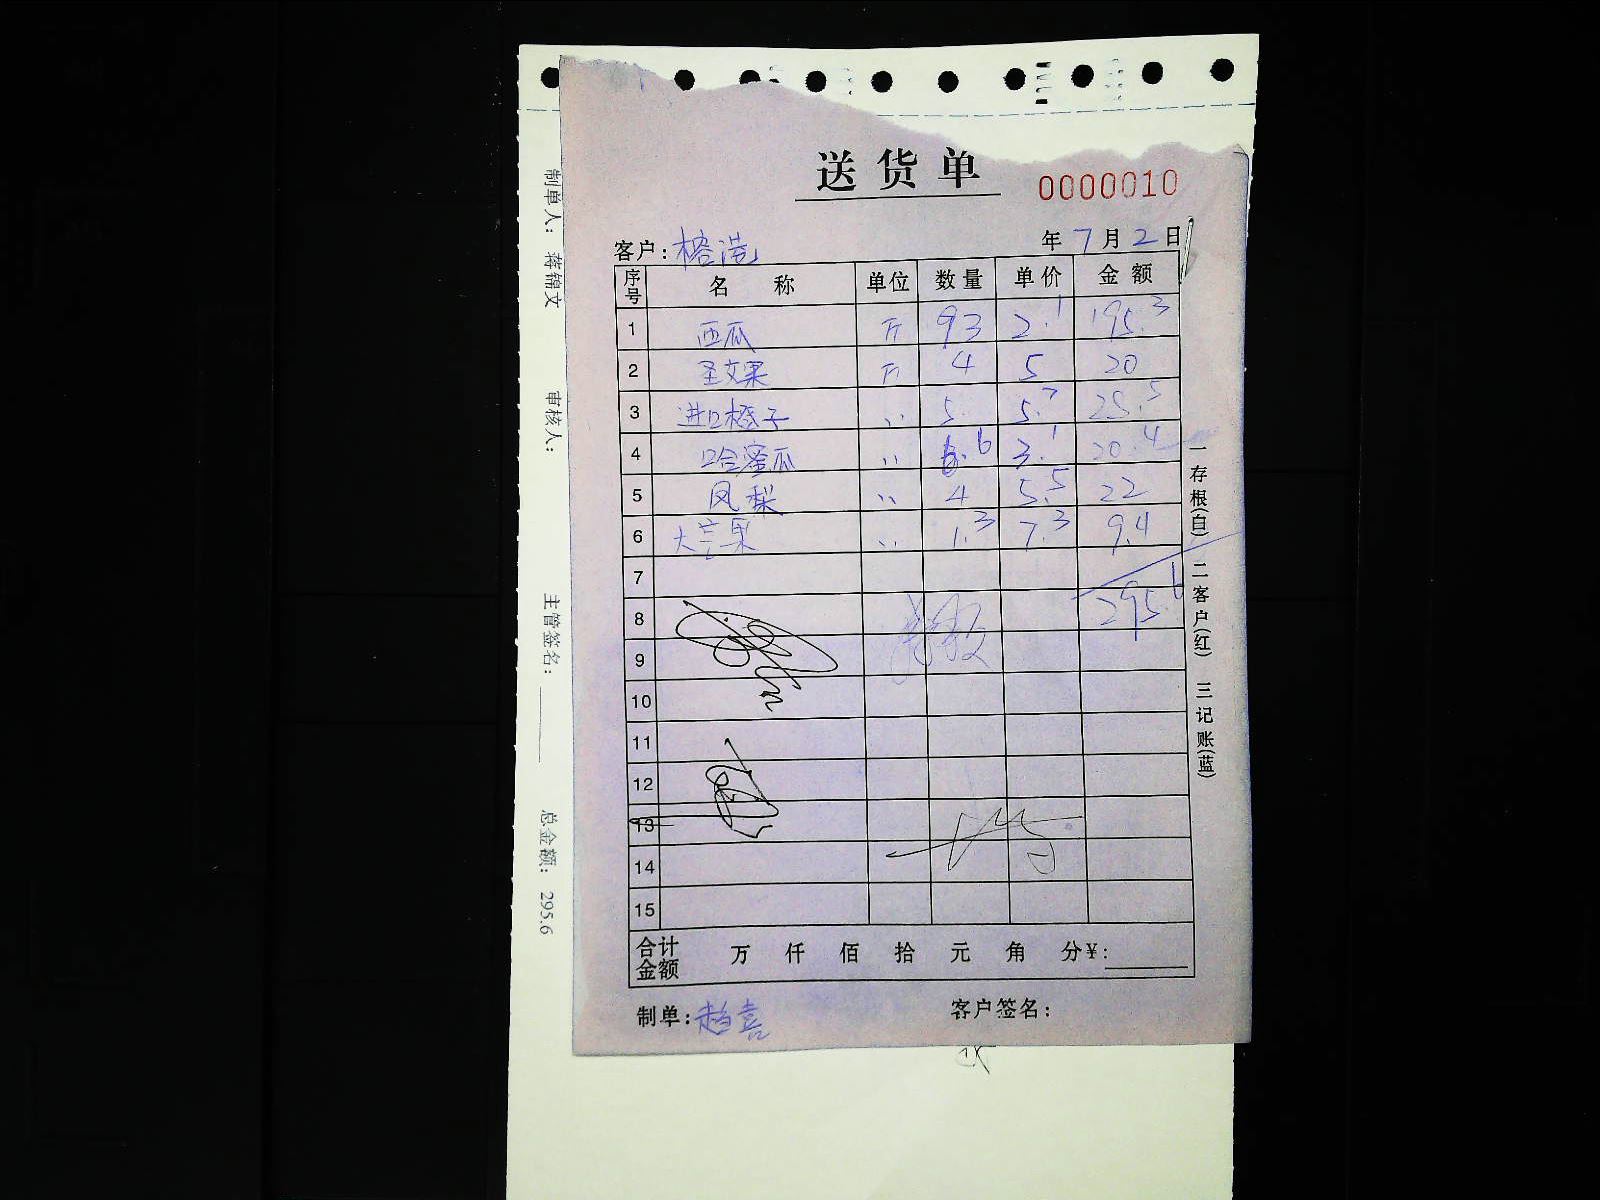 送货单
0000010
客户: 榕港 年 7 月 2 日
序号 名称 单位 数量 单价 金额
1 西瓜 斤 93 2.1 195.3
2 圣女果 斤 4 5 20
3 进口橙子 〃 5. 5.7 28.5
4 哈蜜瓜 〃 6.6 3.1 20.4
5 凤梨 〃 4 5.5 22
6 大芒果 〃 1.3 7.3 9.4
7
8 295.6
9
10
11
12
13
14
15
合计金额 万 仟 佰 拾 元 角 分 ¥:
制单: 赵喜 客户签名:
一存根(白) 二客户(红) 三记账(蓝)
制单人: 蒋锦文 审核人: 主管签名: 总金额: 295.6